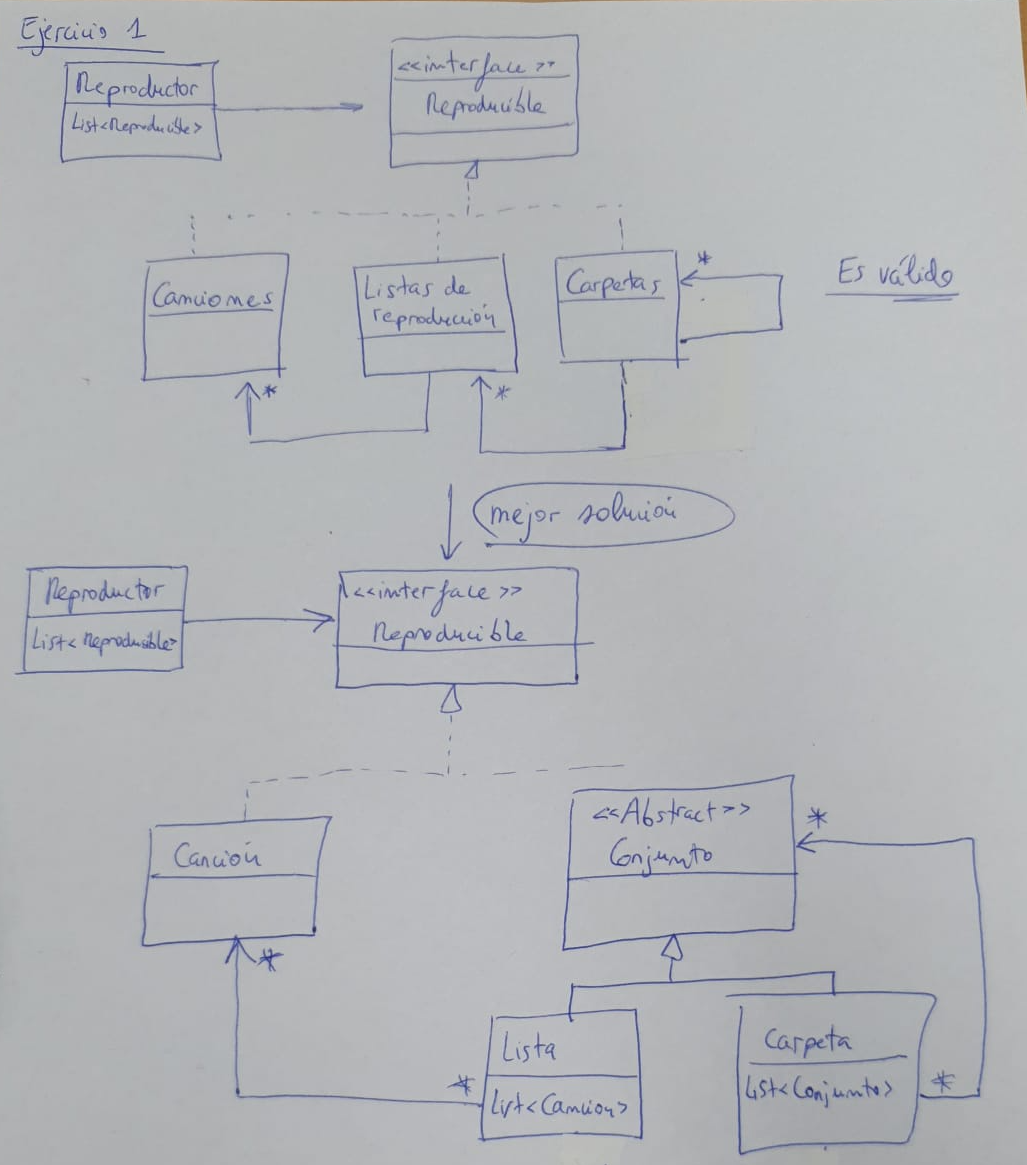 Ejercicio 1
Reproductor
List<Reproducible>
<<interface>>
Reproducible
Canciones
*
Listas de
reproducción
*
Carpetas
*
Es válido
mejor solución
Reproductor
List<Reproducible>
<<interface>>
Reproducible
Canción
*
<<Abstract>>
Conjunto
*
Lista
List<Cancion>
*
Carpeta
List<Conjunto>
*